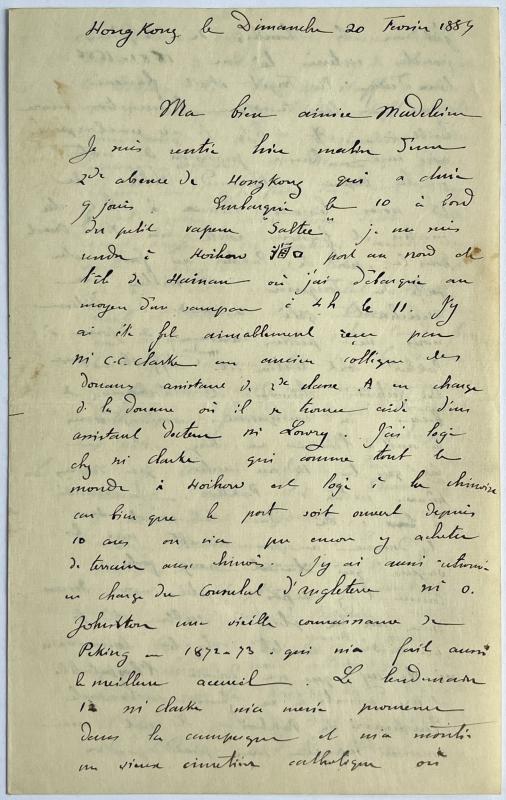 Hong Kong le Dimanche 20 Fevrier 1887
Ma bien aimée Madeleine
Je suis rentré hier matin d'une
2de absence de Hongkong qui a duré
9 jours. Embarqué le 10 à bord
du petit vapeur "Saltee" je me suis
rendu à Hoihow 海口 port au nord de
l'île de Hainan où j'ai débarqué au
moyen d'un sampan à 4h le 11. J'y
ai été fort aimablement reçu par
Mr C.C. Clarke un ancien collègue des
douanes assistant de 2de classe A en charge
de la douane où il se trouve aidé d'un
assistant docteur Mr Lowry. J'ai logé
chez Mr Clarke qui comme tout le
monde à Hoihow est logé à la chinoise
car bien que le port soit ouvert depuis
10 ans on n'a pu encore y acheter
de terrain aux chinois. J'y ai aussi retrouvé
en charge du Consulat d'Angleterre Mr O.
Johnston une vieille connaissance de
Peking en 1872-73. qui m'a fait aussi
le meilleur accueil. Le lendemain
12 Mr Clarke m'a mené promener
dans la campagne et m'a montré
un vieux cimetière catholique où